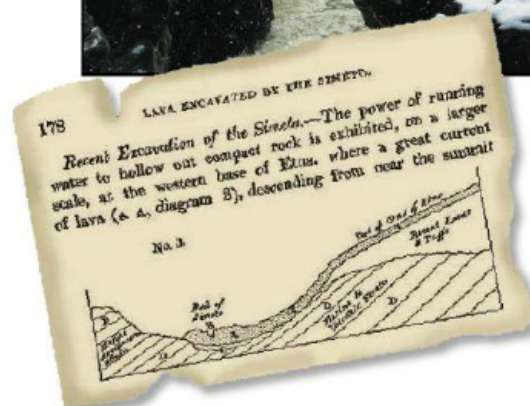 178
LAVA EXCAVATED BY THE SIMETO.
Recent Excavation of the Simeto.—The power of running
water to hollow out compact rock is exhibited, on a larger
scale, at the western base of Etna, where a great current
of lava (A A, diagram 3), descending from near the summit
No. 3.
Part of Cone of Etna
Recent Lavas
& Tuffs
Bed of
Simeto
B
A
D
D
D
D
Marine &
Volcanic Strata